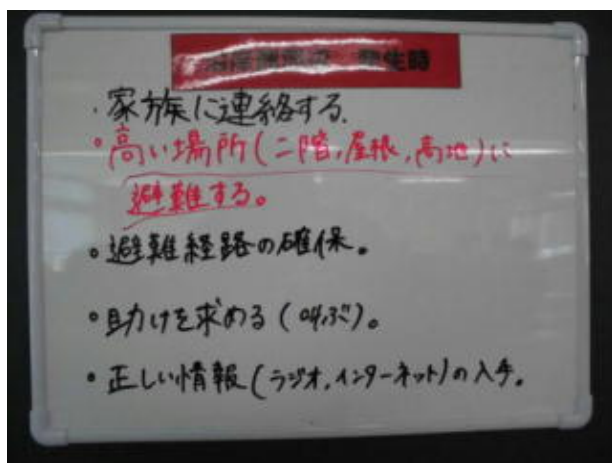 発生時
・家族に連絡する.
・高い場所(二階,屋根,高地)に
避難する。
・避難経路の確保。
・助けを求める(叫ぶ)。
・正しい情報(ラジオ,インターネット)の入手。